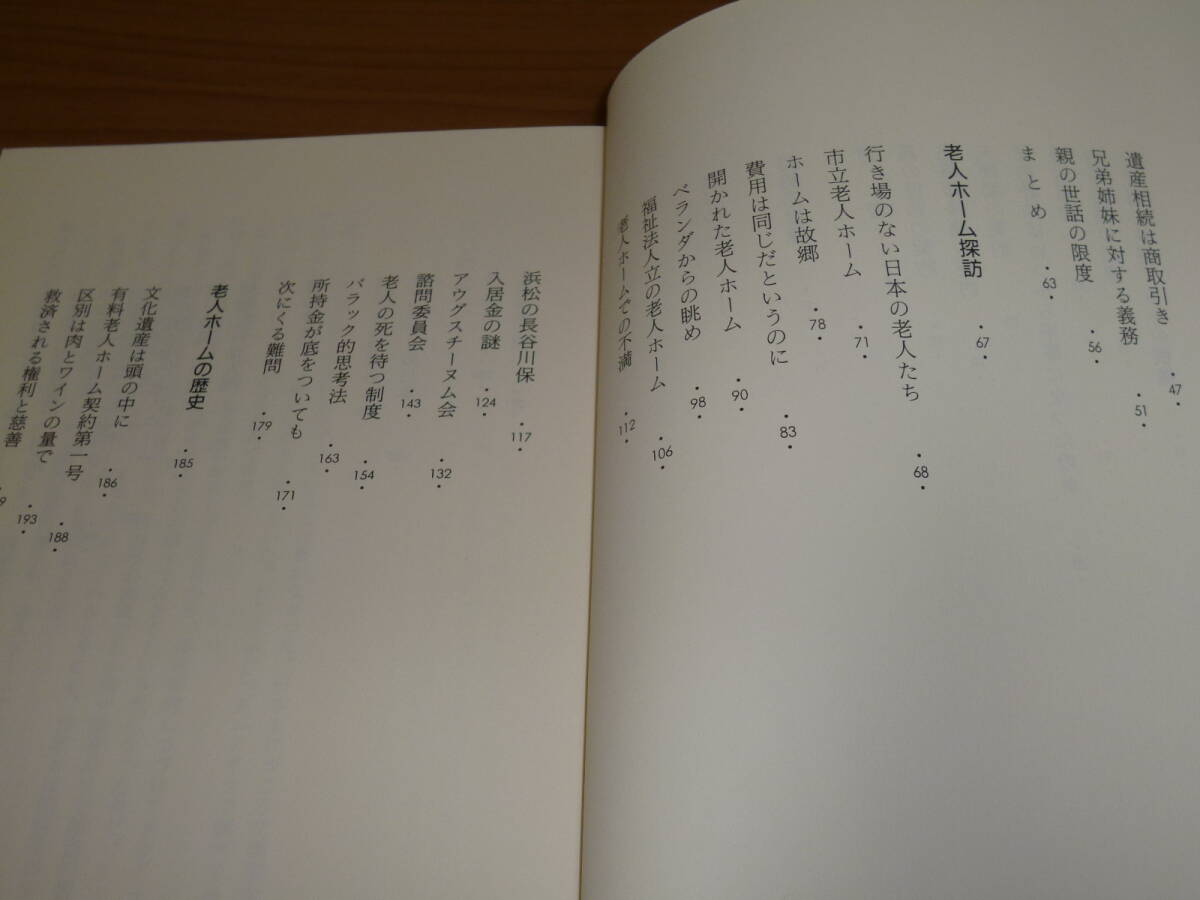 遺産相続は商取引き ・47・
兄弟姉妹に対する義務 ・51・
親の世話の限度 ・56・
まとめ ・63・
老人ホーム探訪 ・67・
行き場のない日本の老人たち ・68・
市立老人ホーム ・71・
ホームは故郷 ・78・
費用は同じだというのに ・83・
開かれた老人ホーム ・90・
ベランダからの眺め ・98・
福祉法人立の老人ホーム ・106・
老人ホームでの不満 ・112・
浜松の長谷川保 ・117・
入居金の謎 ・124・
アウグスチーヌム会 ・132・
諮問委員会 ・143・
老人の死を待つ制度 ・154・
バラック的思考法 ・163・
所持金が底をついても ・171・
次にくる難問 ・179・
老人ホームの歴史 ・185・
文化遺産は頭の中に ・186・
有料老人ホーム契約第一号 ・188・
区別は肉とワインの量で ・193・
救済される権利と慈善